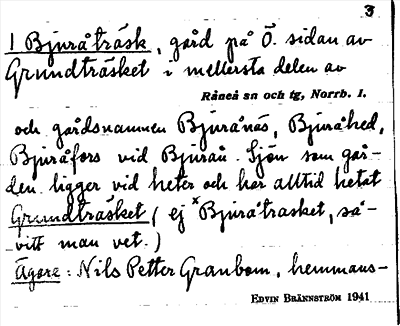 3
1 Bjuråträsk, gård på Ö. sidan av
Grundträsket i mellersta delen av
Råneå sn och tg, Norrb. l.
och gårdsnamnen Bjurånäs, Bjuråhed,
Bjuråfors vid Bjurån. Sjön som går-
den ligger vid heter och har alltid hetat
Grundträsket (ej *Bjuråtrasket, så-
vitt man vet.)
Ägare: Nils Petter Granbom, hemmans-
EDVIN BRÄNNSTRÖM 1941